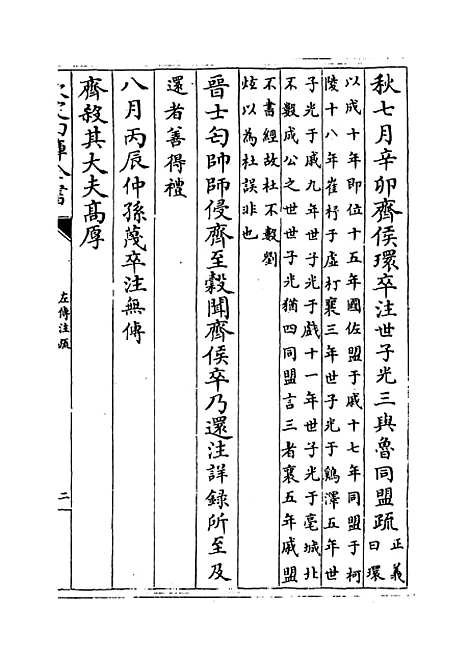 秋七月辛卯齊侯環卒注世子光三與魯同盟疏正義曰環
以成十年即位十五年國佐盟于戚十七年同盟于柯
陵十八年崔杼于虛朾襄三年世子光于鷄澤五年世
子光于戚九年世子光于戲十一年世子光于亳城北
不數成公之世世子光猶四同盟言三者襄五年戚盟
不書經故杜不數劉
炫以為杜誤非也
晉士匄帥師侵齊至穀聞齊侯卒乃還注詳録所至及
還者善得禮
八月丙辰仲孫蔑卒注無傳
齊殺其大夫髙厚
左傳注疏
二